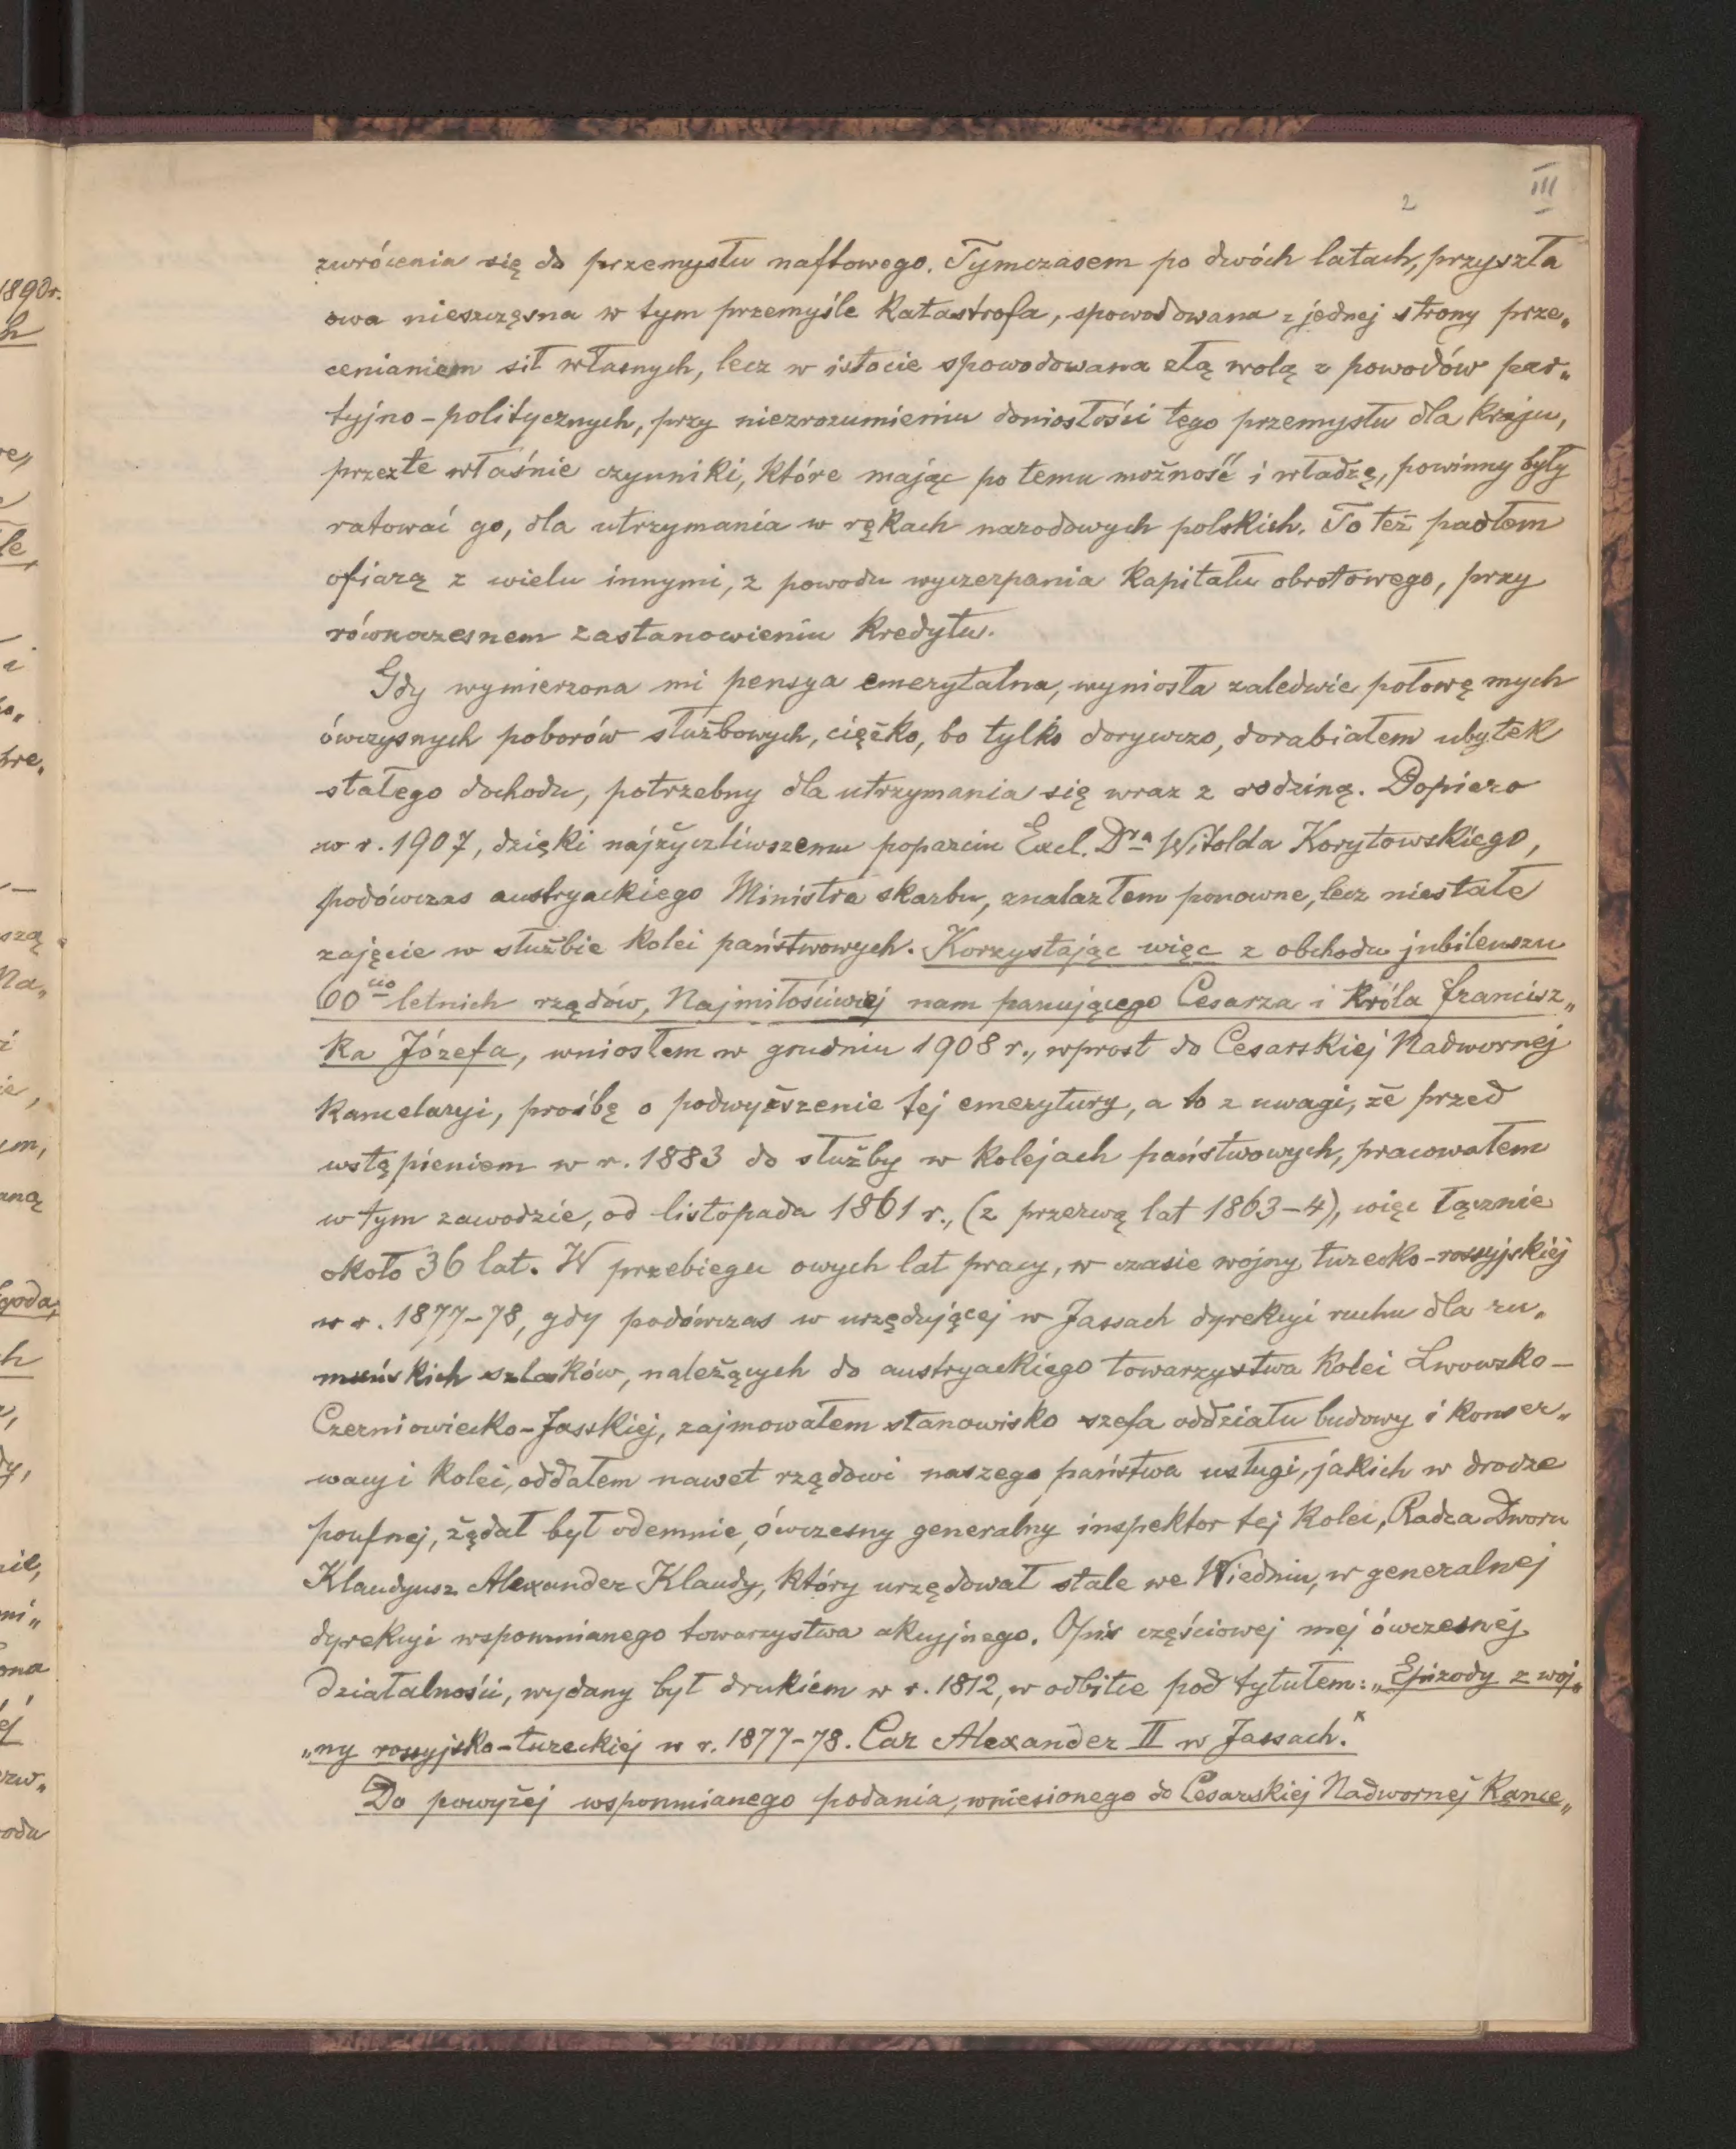 III
2
zwrócenia się do przemysłu naftowego. Tymczasem po dwóch latach, przyszła
owa nieszczęsna w tym przemyśle katastrofa, spowodowana z jednej strony prze„
cenianiem sił własnych, lecz w istocie spowodowana złą wolą z powodów par„
tyjno-politycznych, przy niezrozumieniu doniosłości tego przemysłu dla kraju,
przez te właśnie czynniki, które mając po temu możność i władzę, powinny były
ratować go, dla utrzymania w rękach narodowych polskich. To też padłem
ofiarą z wielu innymi, z powodu wyczerpania kapitału obrotowego, przy
równoczesnem zastanowieniu kredytu.
Gdy wymierzona mi pensya emerytalna, wyniosła zaledwie połowę mych
ówczysnych poborów służbowych, ciężko, bo tylko dorywczo, dorabiałem ubytek
stałego dochodu, potrzebny dla utrzymania się wraz z rodziną. Dopiero
w r. 1907, dzięki najżyczliwszemu poparciu Excl. Dra Witolda Korytowskiego,
podówczas austryackiego Ministra skarbu, znalazłem ponowne, lecz niestałe
zajęcie w służbie kolei państwowych. Korzystając więc z obchodu jubileuszu
60cio letnich rządów, Najmiłościwiej nam panującego Cesarza i Króla Francisz„
ka Józefa, wniosłem w grudniu 1908 r., wprost do Cesarskiej Nadwornej
Kancelaryi, prośbę o podwyższenie tej emerytury, a to z uwagi, że przed
wstąpieniem w r. 1883 do służby w kolejach państwowych, pracowałem
w tym zawodzie, od listopada 1861 r., (z przerwą lat 1863-4), więc łącznie
około 36 lat. W przebiegu owych lat pracy, w czasie wojny turecko-rossyjskiej
w r. 1877-78, gdy podówczas w urzędującej w Jassach dyrekcyi ruchu dla ru„
muńskich szlaków, należących do austryackiego towarzystwa kolei Lwowsko-
Czerniowiecko-Jasskiej, zajmowałem stanowisko szefa oddziału budowy i konser„
wacyi kolei, oddałem nawet rządowi naszego państwa usługi, jakich w drodze
poufnej, żądał był odemnie, ówczesny generalny inspektor tej kolei, Radca Dworu
Klaudyusz Alexander Klaudy, który urzędował stale we Wiedniu, w generalnej
dyrekcyi wspomnianego towarzystwa akcyjnego. Opis częściowej mej ówczesnej
działalności, wydany był drukiem w r. 1812, w odbitce pod tytułem: „Epizody z woj„
„ny rossyjsko-tureckiej w r. 1877-78. Car Alexander II w Jassach."
Do powyżej wspomnianego podania, wniesionego do Cesarskiej Nadwornej Kance„